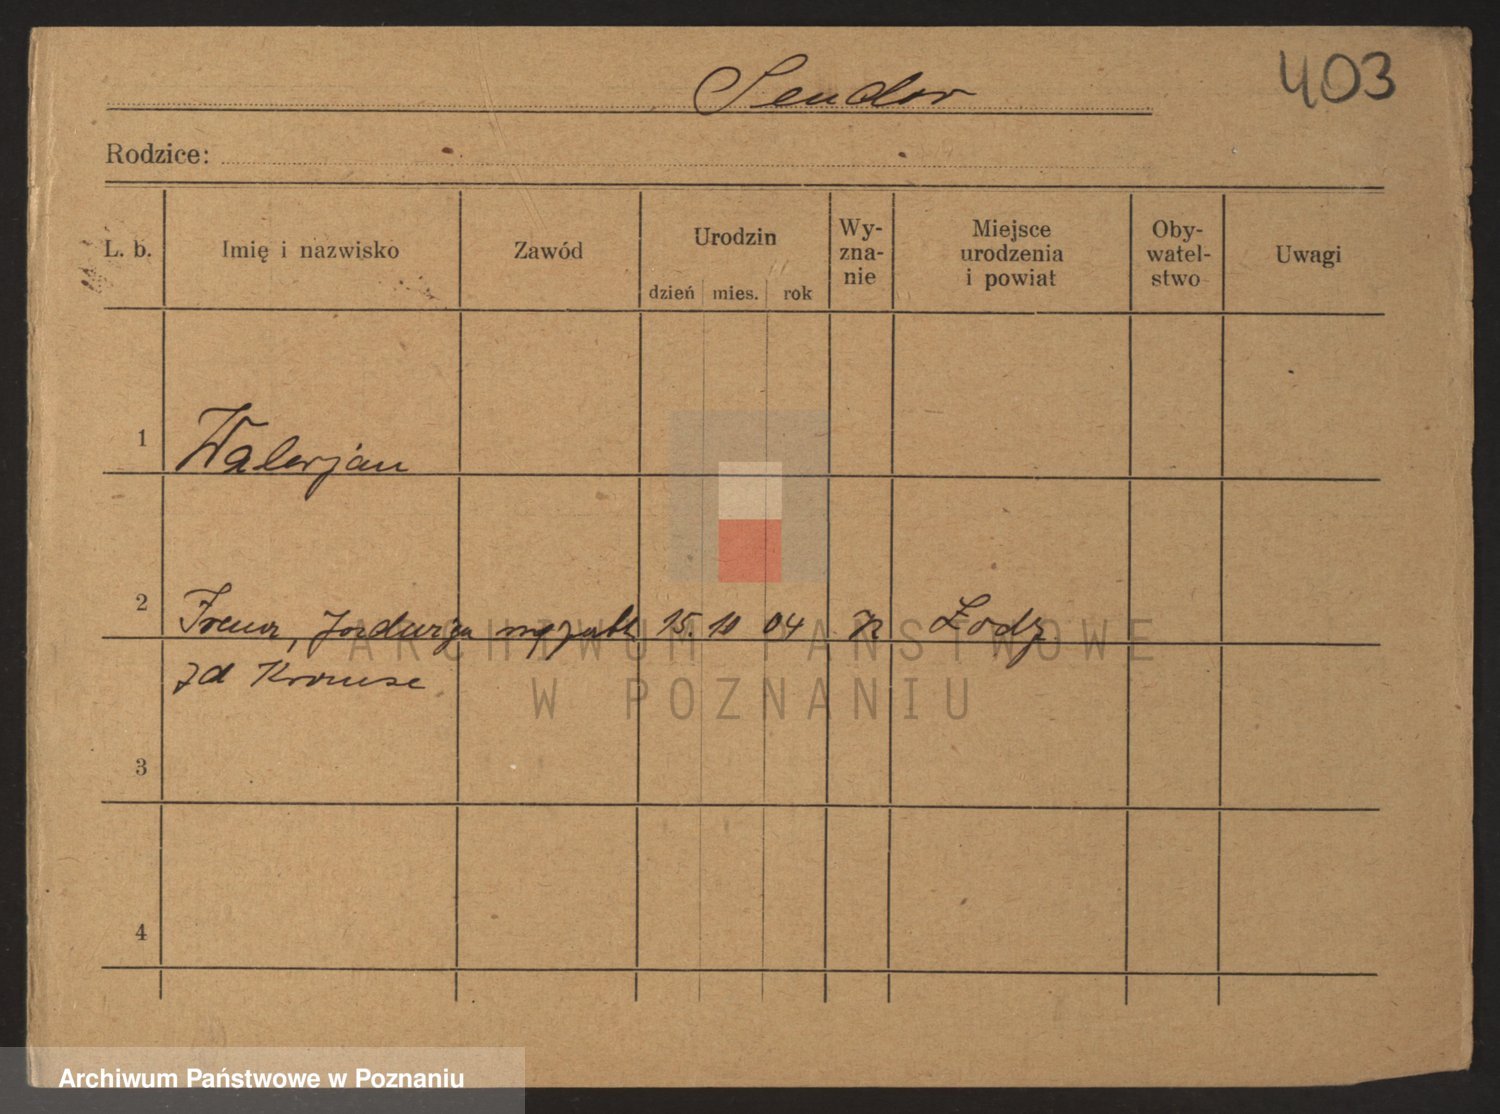 Sendor
403
Rodzice:
L. b. Imię i nazwisko Zawód Urodzin dzień mies. rok Wy- zna- nie Miejsce urodzenia i powiat Oby- watel- stwo Uwagi
1 Walerjan
2 Irena, Jadwiga 15. 10 04 Łodz
zd Krause
3
4
ARCHIWUM PAŃSTWOWE
W POZNANIU
Archiwum Państwowe w Poznaniu